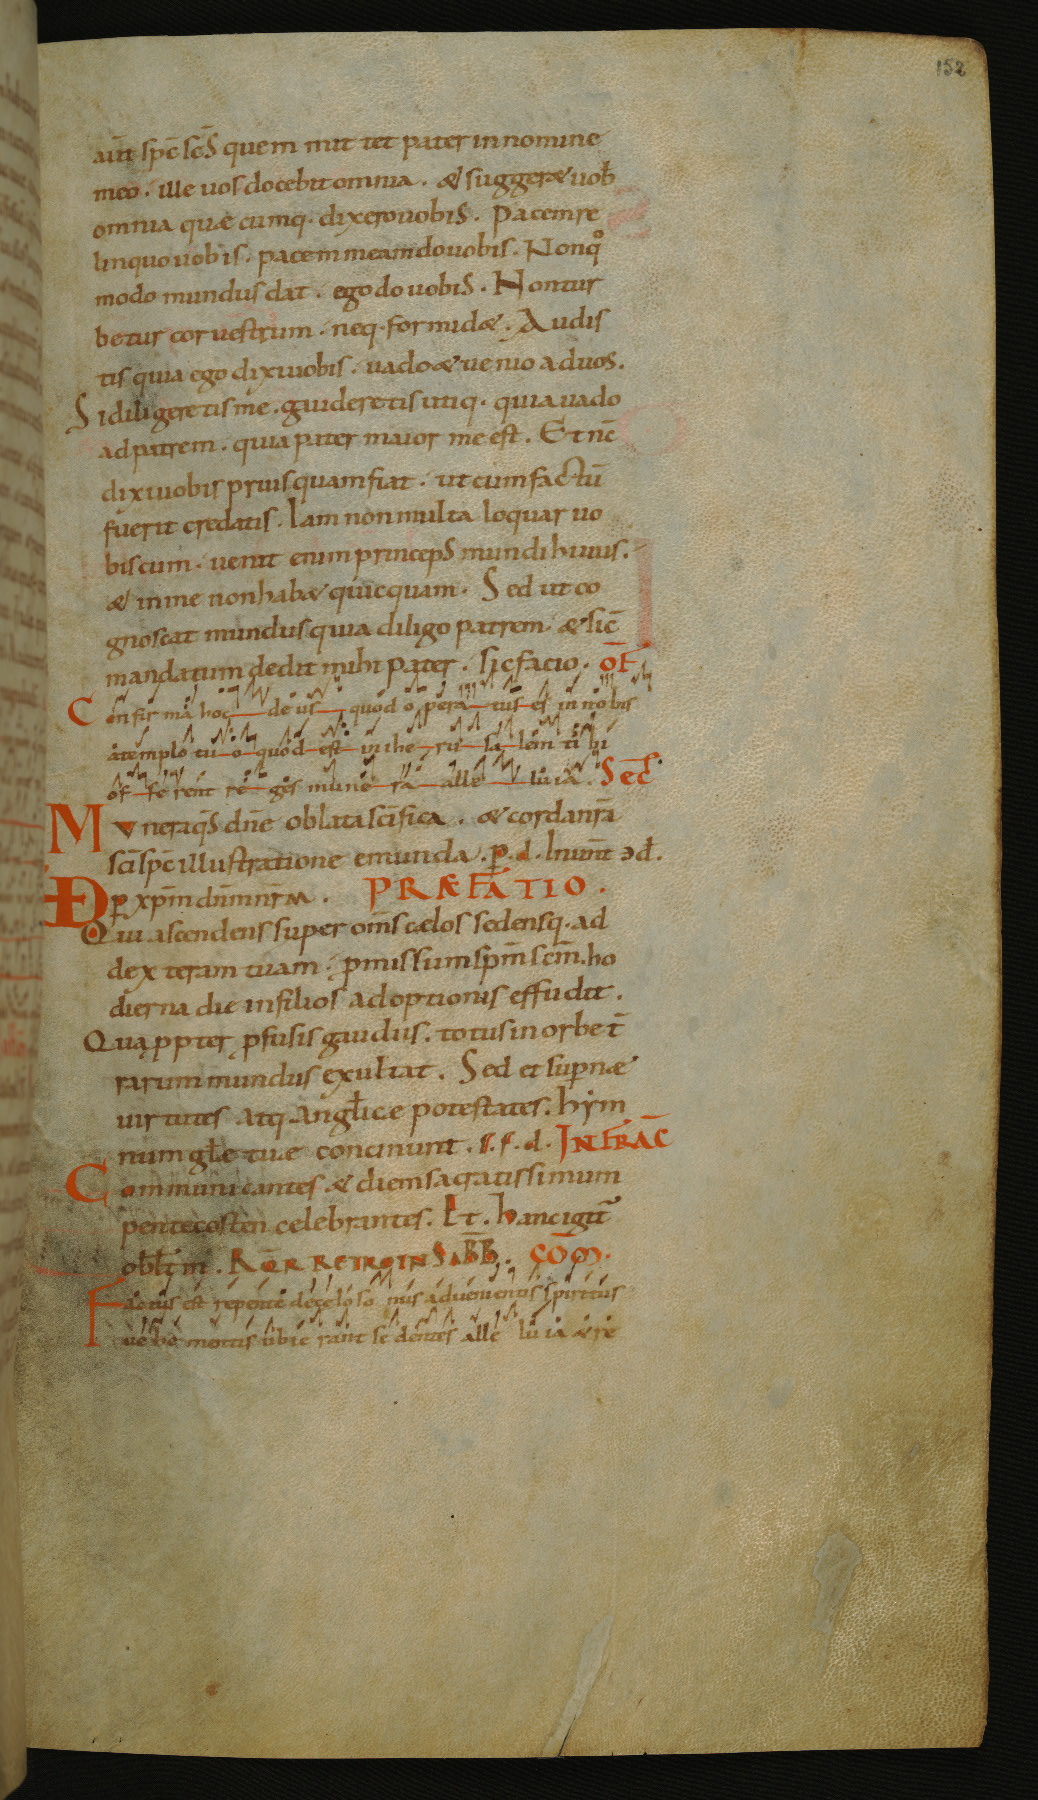 152
aut̄ sp̄c sc̄s quem mittet pater in nomine
meo . ille uos docebit omnia . & sugger& uob̄
omnia quecumq. dixero uobis . Pacem re
linquo uobis . pacem meam do uobis . Non quo
modo mundus dat . ego do uobis . Non tur
betur cor uestrum . neq. formid& . Audis
tis quia ego dixi uobis . uado & uenio ad uos .
Si diligeretis me . gauderetis utiq. quia uado
ad patrem . quia pater maior me est . Et nc̄
dixi uobis prius quam fiat . ut cum factū
fuerit credatis . Iam non multa loquar uo
biscum . uenit enim princeps mundi huius .
& in me non hab& quicquam . Sed ut co
gnoscat mundus quia diligo patrem . & sic̄
mandatum dedit mihi pater . sic facio . OF̄
Confirma hoc deus quod operatus es in nobis
a templo tuo quod est in iherusalem tibi
offerent reges munera alleluia . Sec̄
Munera qs̄ dn̄e oblata sc̄ifica . & corda nr̄a
sc̄i sp̄c illustratione emunda . p̱ . d . In unit̄ &d̄ .
VD p̱ xp̄m dn̄m nr̄m . PRAEFATIO .
Qui ascendens super om̄s cælos sedensq. ad
dexteram tuam . p̱missum sp̄m sc̄m . ho
dierna die in filios adoptionis effudit .
Quap̱pter p̱fusis gaudiis . totus in orbe t̄
rarum mundus exultat . Sed et sup̱næ
uirtutes atq. angl̄icæ potestates . hym
num gl̄e tuæ concinunt . s . f . d . INFRAC̄
Communicantes & diem sacratissimum
pentecosten celebrantes . Et . Hanc igit̄
obl̄t̄m . REQR RETRO IN SABB̄ . COM̄ .
Factus est repente de celo sonus aduenientis spiritus
uehementis ubi erant sedentes alleluia & re